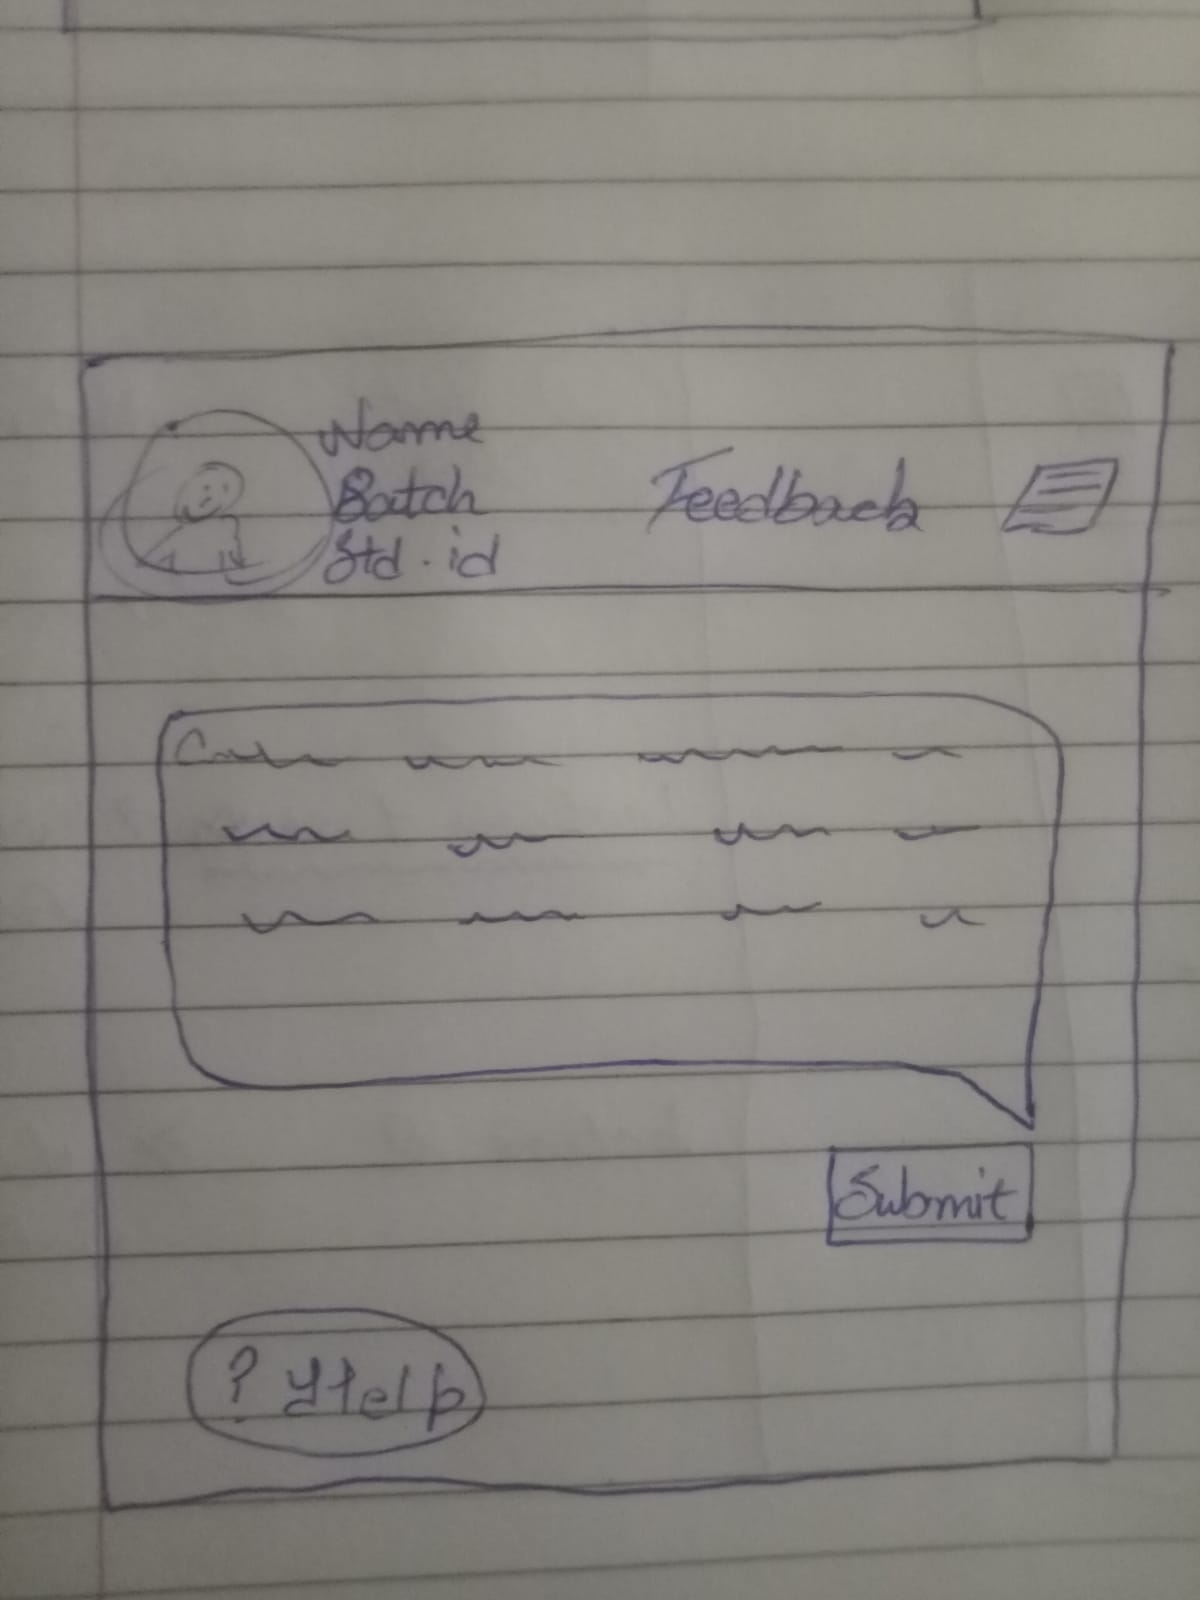 Name
Batch
Std. id
Feedback
Submit
? Help